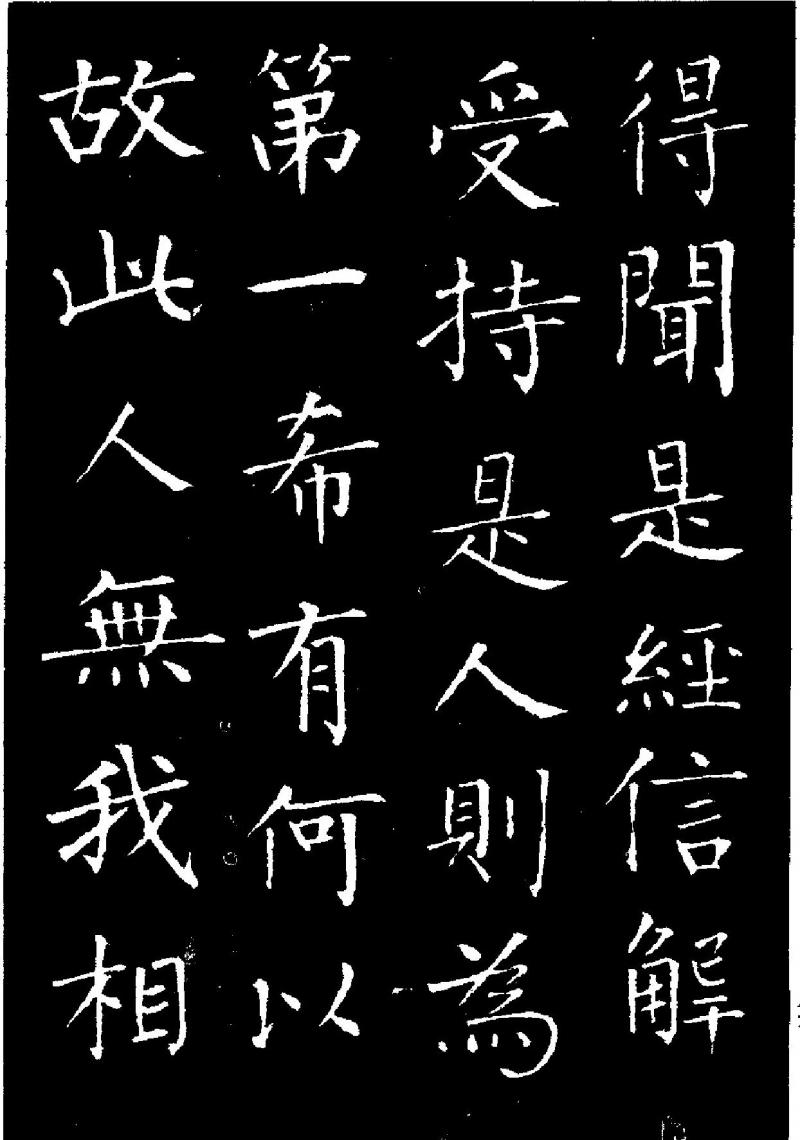 得聞是經信解
受持是人則為
第一希有何以
故此人無我相